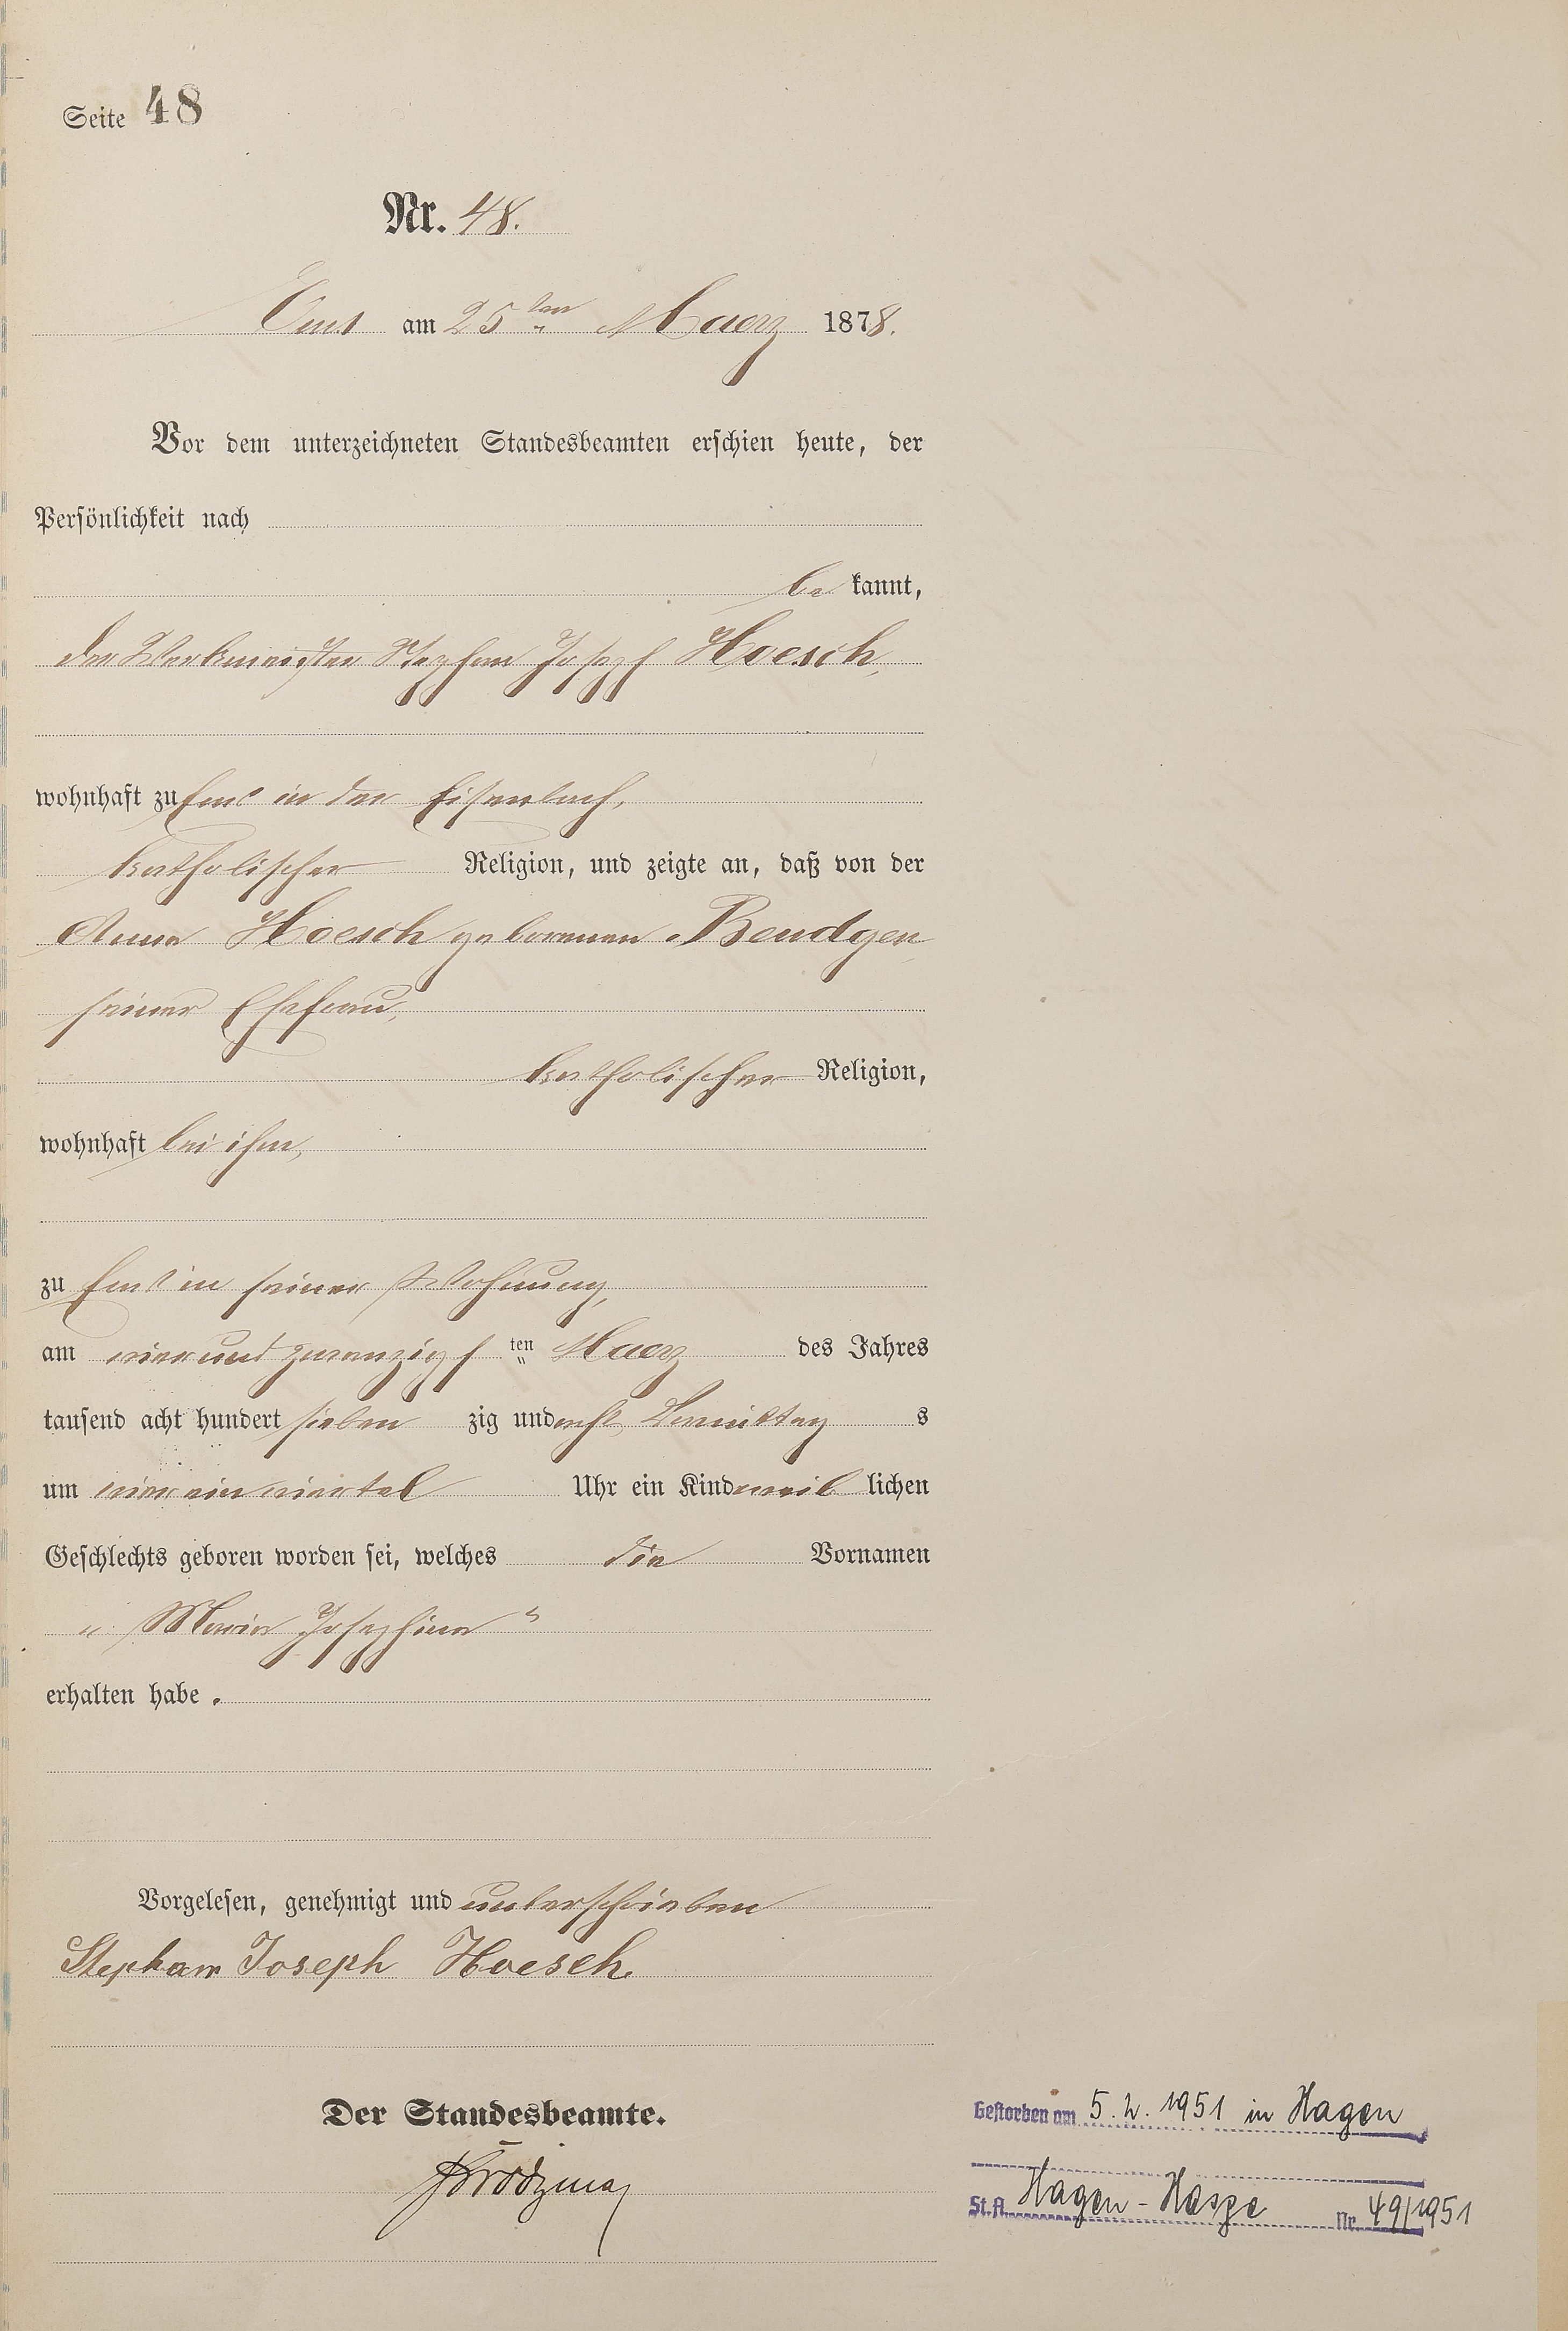 Seite 48
Nr. 48.
Ems am 25ten Maerz 1878.
Vor dem unterzeichneten Standesbeamten erschien heute, der
Persönlichkeit nach
be kannt,
der Werkmeister Stephan Joseph Hoesch,
wohnhaft zu Ems in der Eisenbach,
katholischer Religion, und zeigte an, daß von der
Anna Hoesch geborenen Bendgen,
seiner Ehefrau,
katholischer Religion,
wohnhaft bei ihm,
zu Ems in seiner Wohnung,
am vierundzwanzigsten Maerz des Jahres
tausend acht hundert sieben zig und acht Vormittags
um vier ein viertel Uhr ein Kind weib lichen
Geschlechts geboren worden sei, welches die Vornamen
„Maria Josephina“
erhalten habe.
Vorgelesen, genehmigt und unterschrieben
Stephan Joseph Hoesch.
Der Standesbeamte.
Gestorben am 5.2.1951 in Hagen
St.A. Hagen-Haspe Nr. 49/1951